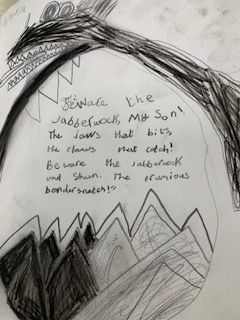 "Beware the
Jabberwock, My Son!
The jaws that bite,
the claws that catch!
Beware the Jabberwock
and Shun. The frumious
bandersnatch!"